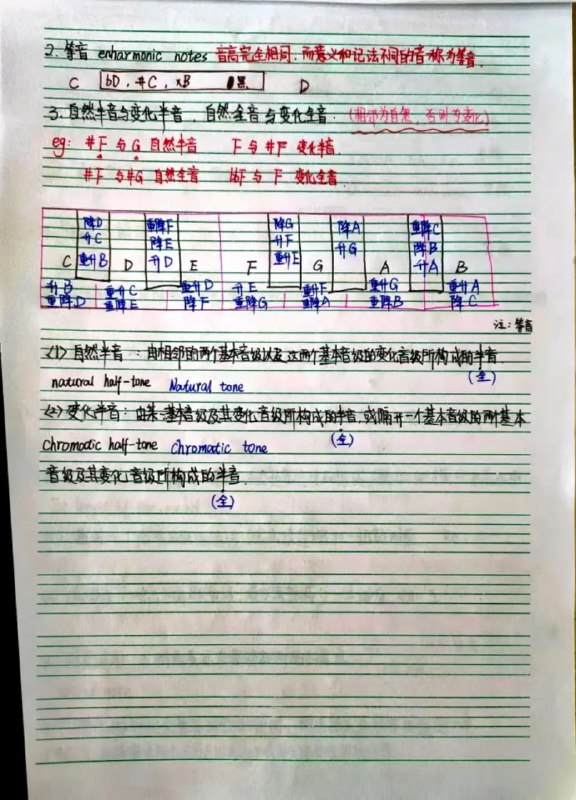 2. 等音 enharmonic notes 音高完全相同,而意义和记法不同的音称为等音.
C bD, #C, xB 黑 D
3. 自然半音与变化半音. 自然全音与变化全音. (相邻为自然, 否则为变化)
eg: #F 与 G 自然半音 F 与 #F 变化半音.
#F 与 #G 自然全音 bF 与 F 变化全音.
降D 重降F 降G 降A 重降C
升C 降E 升F 升G 降B
重升B 升D 重升E 升A
C D E F G A B
升B 重升C 重升D 升E 重升F 重升G 重升A
重降D 重降E 降F 重降G 重降A 重降B 降C
注: 等音
(1) 自然半音: 由相邻的两个基本音级以及这两个基本音级的变化音级所构成的半音.
(全)
natural half-tone Natural tone
(2) 变化半音: 由某一基本音级及其变化音级所构成的半音, 或隔开一个基本音级的两个基本
(全)
Chromatic half-tone Chromatic tone
音级及其变化音级所构成的半音.
(全)